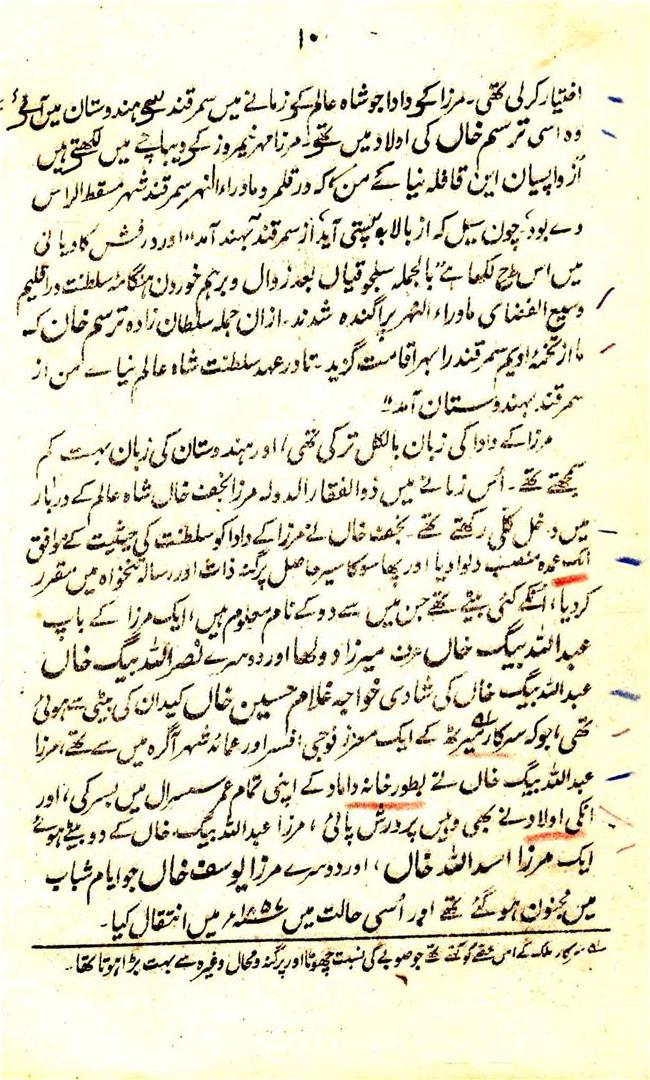 ۱۰
اختیار کر لی تھی۔ مرزا کے دادا جو شاہ عالم کے زمانے میں سمرقند سے ہندوستان میں آئے
وہ اسی ترسم خاں کی اولاد میں تھے۔ مرزا مہر نیمروز کے دیباچے میں لکھتے ہیں
از واپسیان این قافلہ نیائے من کہ در قلمرو ماوراء النہر سمرقند شہر مسقط الراس
وے بود، چون سیل کہ از بالا بہ پستی آید از سمرقند بہند آمد" اور درفش کاویانی
میں اس طرح لکھا ہے "بالجملہ سلجوقیاں بعد زوال و برہم خوردن ہنگامۂ سلطنت در اقلیم
وسیع الفضای ماوراء النہر پراگندہ شدند۔ ازان جملہ سلطان زادہ ترسم خان کہ
ما از تخمۂ اویم سمرقند را بہر اقامت گزید۔ تا در عہد سلطنت شاہ عالم نیاے من از
سمرقند بہندوستان آمد"
مرزا کے دادا کی زبان بالکل ترکی تھی، اور ہندوستان کی زبان بہت کم
سمجھتے تھے۔ اُس زمانے میں ذوالفقار الدولہ مرزا نجف خاں شاہ عالم کے دربار
میں دخل کلّی رکھتے تھے۔ نجف خاں نے مرزا کے دادا کو سلطنت کی حیثیت کے موافق
ایک عمدہ منصب دلوا دیا اور پہاسو کا سیر حاصل پرگنہ ذات اور رسالہ کی تنخواہ میں مقرر
کر دیا، انکے کئی بیٹے تھے جن میں سے دو کے نام معلوم ہیں، ایک مرزا کے باپ
عبداللہ بیگ خاں عرف میرزا دولھا اور دوسرے نصراللہ بیگ خاں
عبداللہ بیگ خاں کی شادی خواجہ غلام حسین خاں کمیدان کی بیٹی سے ہوئی
تھی، جو کہ سرکار میرٹھ کے ایک معزز فوجی افسر اور عمائد شہر آگرہ میں سے تھے، مرزا
عبداللہ بیگ خاں نے بطور خانہ داماد کے اپنی تمام عمر سسرال میں بسر کی، اور
انکی اولاد نے بھی وہیں پرورش پائی، مرزا عبداللہ بیگ خاں کے دو بیٹے ہوئے
ایک مرزا اسد اللہ خاں، اور دوسرے مرزا یوسف خاں جو ایام شباب
میں مجنون ہو گئے تھے اور اُسی حالت میں ۱۸۵۷ء میں انتقال کیا۔
سرکار ملک کے اس حصّے کو کہتے تھے جو صوبے کی نسبت چھوٹا اور پرگنہ و محال وغیرہ سے بہت بڑا ہوتا تھا۔